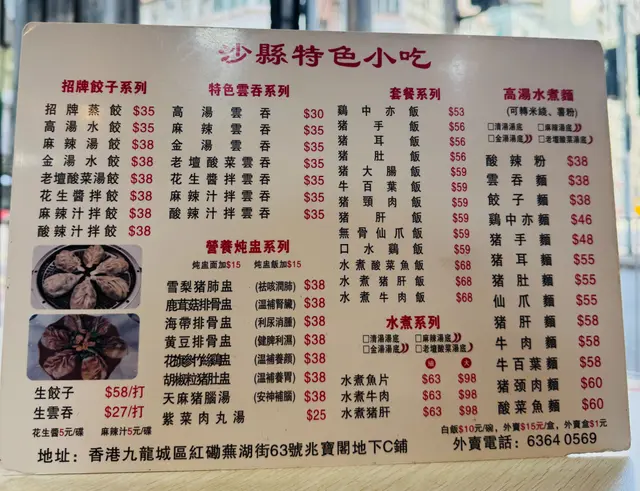 沙縣特色小吃
招牌餃子系列
招牌蒸餃 $35
高湯水餃 $35
麻辣湯餃 $38
金湯水餃 $38
老壇酸菜湯餃 $38
花生醬拌餃 $38
麻辣汁拌餃 $38
酸辣汁拌餃 $38
生餃子 $58/打
生雲吞 $27/打
花生醬5元/碟 麻辣汁5元/碟
特色雲吞系列
高湯雲吞 $30
麻辣雲吞 $35
金湯雲吞 $35
老壇酸菜雲吞 $35
花生醬拌雲吞 $35
麻辣汁拌雲吞 $35
酸辣汁拌雲吞 $35
營養炖盅系列
炖盅面加$15 炖盅飯加$15
雪梨猪肺盅 (祛咳潤肺) $38
鹿茸菇排骨盅 (溫補腎臟) $38
海帶排骨盅 (利尿消腫) $38
黄豆排骨盅 (健脾利濕) $38
(溫補養顏) $38
胡椒粒猪肚盅 (溫補養胃) $38
天麻猪腦湯 (安神補腦) $38
紫菜肉丸湯 $25
套餐系列
鷄中亦飯 $53
猪手飯 $56
猪耳飯 $56
猪肚飯 $56
猪大腸飯 $59
牛百葉飯 $59
猪頸肉飯 $59
猪肝飯 $59
無骨仙爪飯 $59
口水鷄飯 $59
水煮酸菜魚飯 $68
水煮猪肝飯 $68
水煮牛肉飯 $68
水煮系列
□清湯湯底 □麻辣湯底
□金湯湯底 □老壇酸菜湯底
大
水煮魚片 $63 $98
水煮牛肉 $63 $98
水煮猪肝 $63 $98
高湯水煮麵
(可轉米綫、薯粉)
□清湯湯底 □麻辣湯底
□金湯湯底 □老壇酸菜湯底
酸辣粉 $38
雲吞麵 $38
餃子麵 $38
鷄中亦麵 $46
猪手麵 $48
猪耳麵 $55
猪肚麵 $55
仙爪麵 $55
猪肝麵 $58
牛肉麵 $58
牛百葉麵 $58
猪頸肉麵 $60
酸菜魚麵 $60
白飯$10元/碗，外賣$15元/盒，外賣盒$1元
外賣電話：6364 0569
地址：香港九龍城區紅磡蕪湖街63號兆寶閣地下C鋪